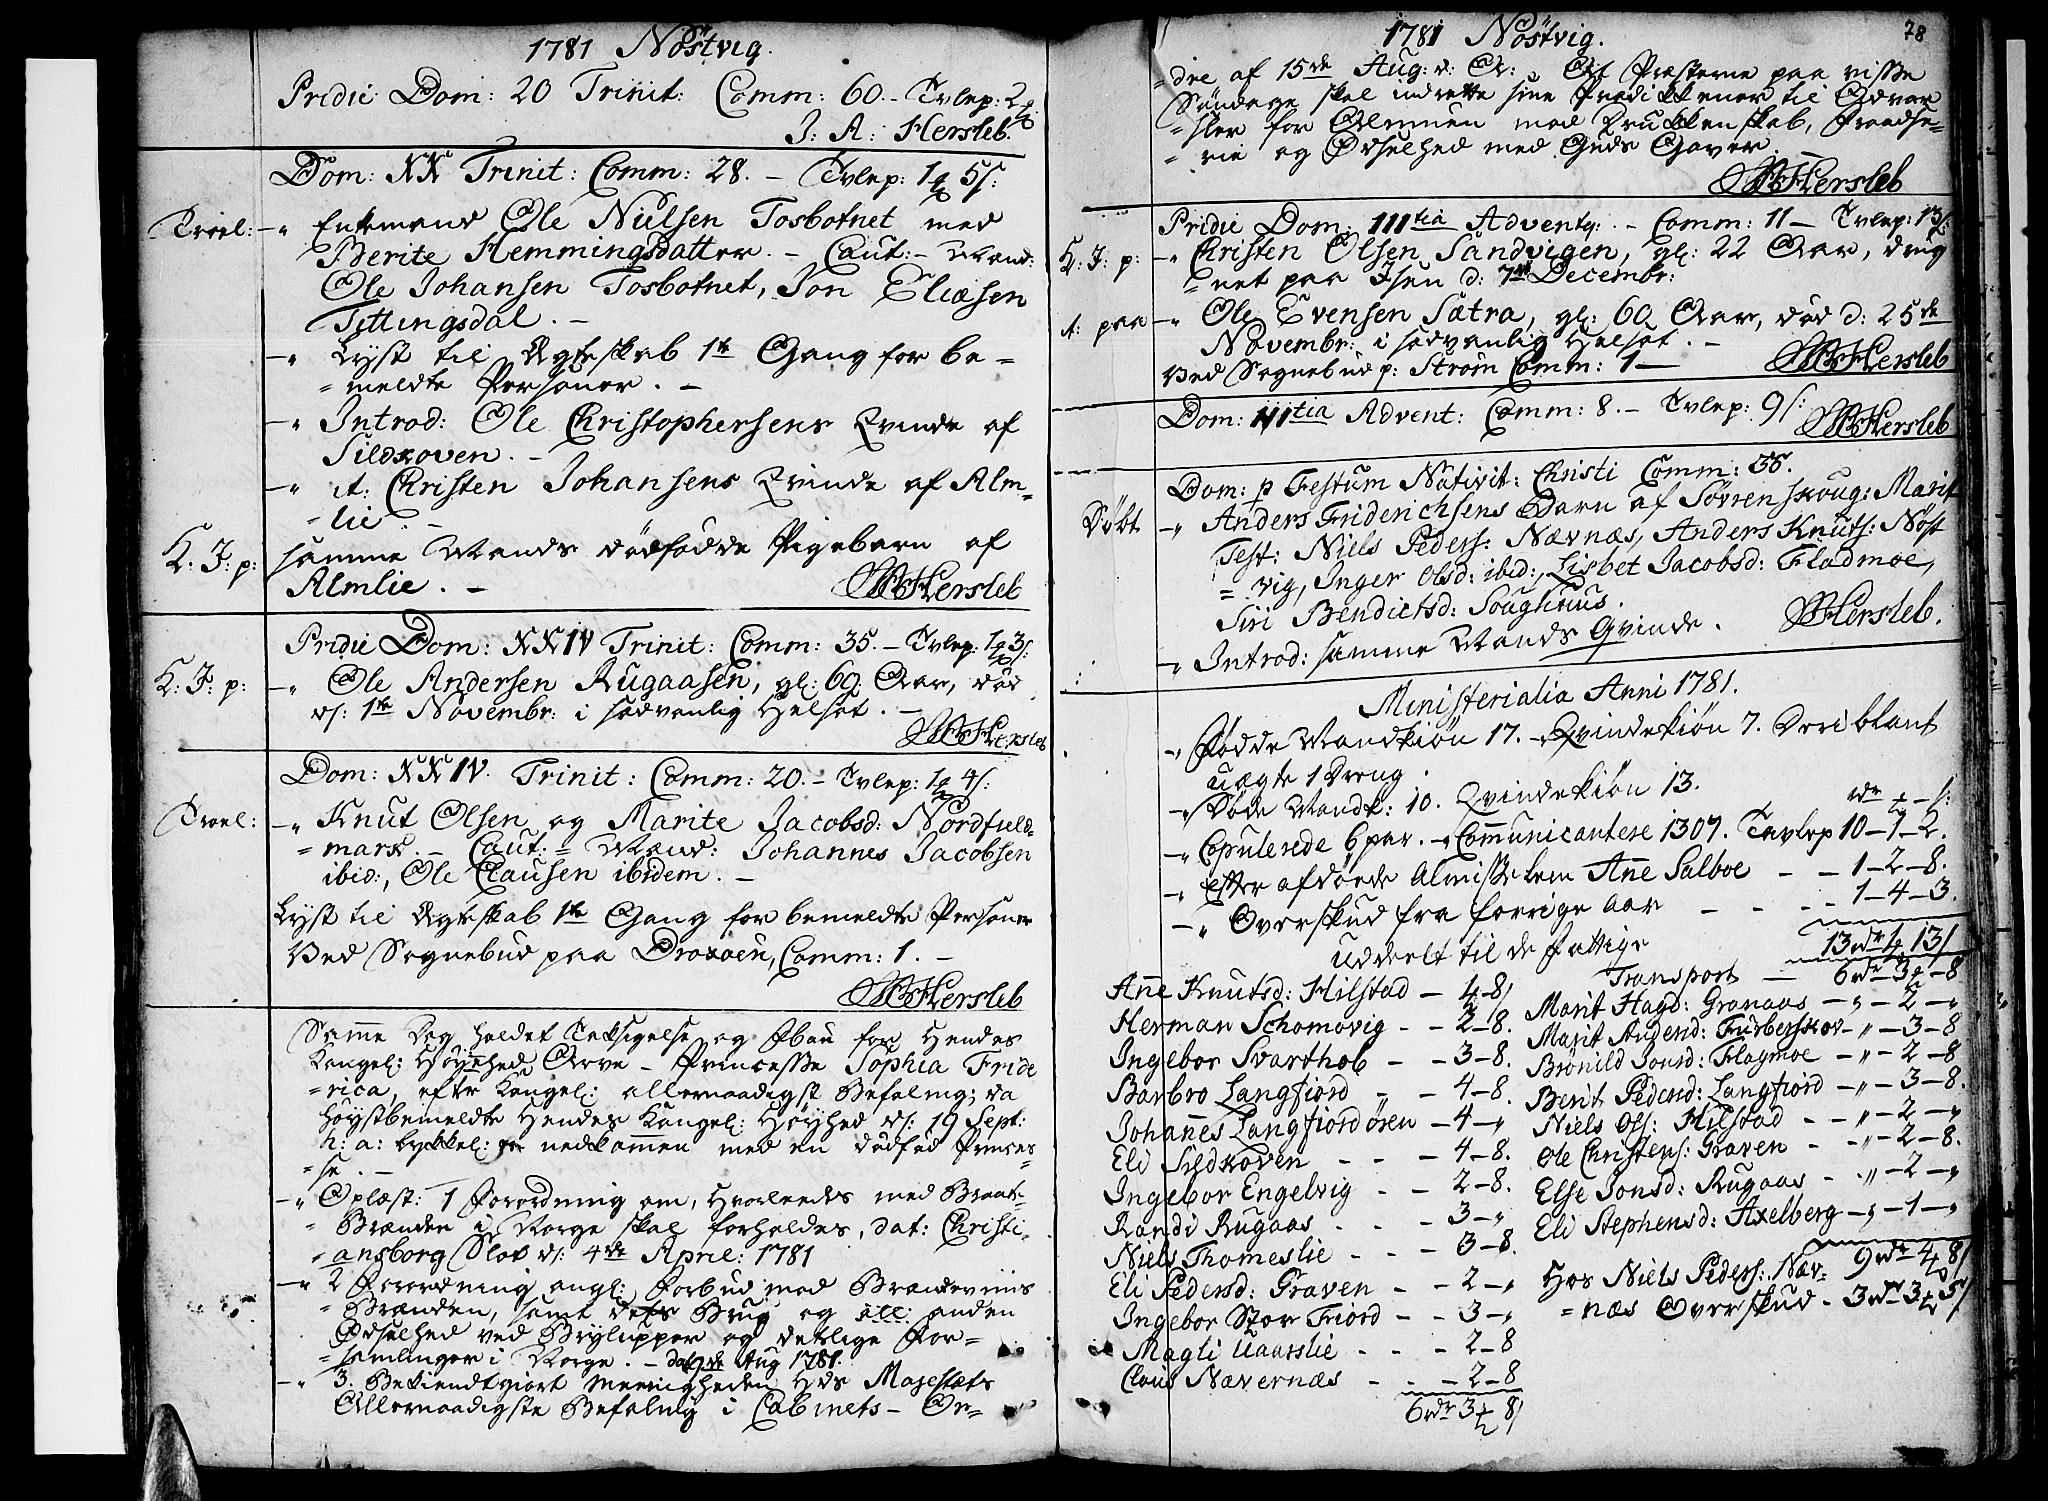 1781 Nöstvig.
Pridie Dom: 20 Trinit: Comm: 60. - Tvlep: 2
J: A: Hersleb.
Dom: XX Trinit: Comm: 28. - Tvlep: 1 5 s:
Trol: -" Enkemand Ole Nielsen Tosbotnet med
Berite Hemmingsdatter. - Caut: - Mænd:
Ole Johansen Tosbotnet, Jon Eliæsen
Tettingsdal. -
-" Lyst til Ægteskab 1te Gang for be =
= meldte Personer. -
-" Introd: Ole Christophersens Qvinde af
Sildxoven. -
-" it: Christen Johansens Qvinde af Alm =
= lie. -
K. J: p: samme Mands dødfødde Pigebarn af
Almlie. - JAHersleb
Pridie Dom: XXIV Trinit: Comm: 35. - Tvlep: 1 3 s:
K: J: p: -" Ole Andersen Rugaasen, gl: 69 Aar, død
d: 1te Novembr: i sædvanlig Helsot. -
JAHersleb
Dom: XXIV. Trinit: Comm: 20. - Tvlep: 1 4 s:
Trol: -" Knut Olsen og Marite Jacobsd: Nordfield =
= mark. - Caut: = Mænd: Johannes Jacobsen
ibid:, Ole Clausen ibidem. -
Lyst til Ægteskab 1te Gang for bemeldte Personer
Ved Sognebud paa Droxöen, Comm: 1. -
JAHersleb
Samme Dag holdet Taksigelse og Bøn for Hendes
Kongel: Høyhed Arve - Princesse Sophia Fride
= rica, efter Kongel: allernaadigst Befaling; da
høystbemeldte Hendes Kongel: Høyhed d: 19 Sept:
h: a: lykkel: nedkommen med en dødfød Princes =
= se. -
-" Oplæst: 1 Forordning om, Hvorledes med Braate =
= Brænden i Norge skal forholdes, dat: Christi =
= ansborg Slot d: 4de April: 1781
-" 2 Forordning angl: Forbud mod Brændeviins
= Brænden, samt dets Brug og all anden
Ødselhed ved Brylupper og detslige For =
= samlinger i Norge. - dat 2de Aug 1781.
-" 3. Bekiendtgiort Meenigheden Hds Majestæts
Allernaadigste Befaling i Cabinets - Or =
1781 Nöstvig. 78
= dre af 15de Aug: d: A: At Præsterne paa visse
Søndage skal indrette sine Prædikkener til Advar
= sler for Almuen mod Drukkenskab, Fraadse =
= rie og Ødselhed med Guds Gaver. -
JAHersleb
Pridie Dom: IIItia Advent: - Comm: 11 - Tvlep: 13 s:
K: J: p: -" Christen Olsen Sandvigen, gl: 22 Aar, drug
= net paa Isen d: 7de Decembr:
it: paa -" Ole Evensen Sætra, gl: 60 Aar, død d: 25de
Novembr: i sædvanlig Helsot. -
Ved Sognebud p: Ström Comm: 1 - JAHersleb
Dom: IIItia Advent: Comm: 8. - Tvlep: 9 s:
JAHersleb
Dom: p Festum Nativit: Christi Comm: 55.
Døbt -" Anders Friderichsens Barn af Sörrenskoug: Marit
Test: Niels Peders: Nævnæs, Anders Knuts: Nöst
= vig, Inger Olsd: ibid:, Lisbet Jacobsd: Fladmoe,
Siri Bendictsd: Soughuus.
-" Introd: samme Mands Qvinde. JAHersleb.
Ministerialia Anni 1781.
-" Fødde Mandkiön 17. -" Qvindekiön 7. Deriblant
uægte 1 Dreng.
-" Døde Mandk: 10. Qvindekiön 13.
-" Copulerede 6 par. -" Communicantere 1307. Tavlep 10 - 1 - 2.
-" Efter afdöede Almisselem Anne Salboe - - 1 - 2 - 8.
-" Overskud fra forrige Aar - - - 1 - 4 - 3.
13 rdr 2 13 s
uddelt til de Fattige
Anne Knutsd: Hilstad - 4 - 8 s
Herman Schomovig - - 2 - 8.
Ingebor Svarthol - - 3 - 8.
Barbro Langfiord - - 4 - 8.
Johannes Langfiordören - 4 - "
Eli Sildxoven - - - 4 - 8.
Ingebor Engelvig - - 2 - 8.
Randi Rugaas - - - 3 - "
Niels Thomeslie - - - 3 - 8.
Eli Pedersd: Graven - - 2 - "
Ingebor Stor Fiord - - 3 - "
Magli Kaarslie - - - 2 - 8
Claus Nævernæs - - - 2 - 8
6 rdr 3 8 s
Transport - 6 rdr 3 - 8
Marit Hagd: Granaas - " - 2 - "
Marit Andersd: Furberskov - " - 3 - 8
Brönild Jonsd: Flagmoe - " - 2 - 8
Berit Pedersd: Langfiord - " - 3 - 8.
Niels Ols: Hilstad - - " - 2 - "
Ole Christens: Graven - - " - 2 - 8.
Else Jonsd: Rugaas - " - 2 - "
Eli Stephensd: Axelberg - " - 1 - "
9 rdr 4 8 s
Hos Niels Peders: Næv =
= næs Overskud - 3 rdr 3 5 s